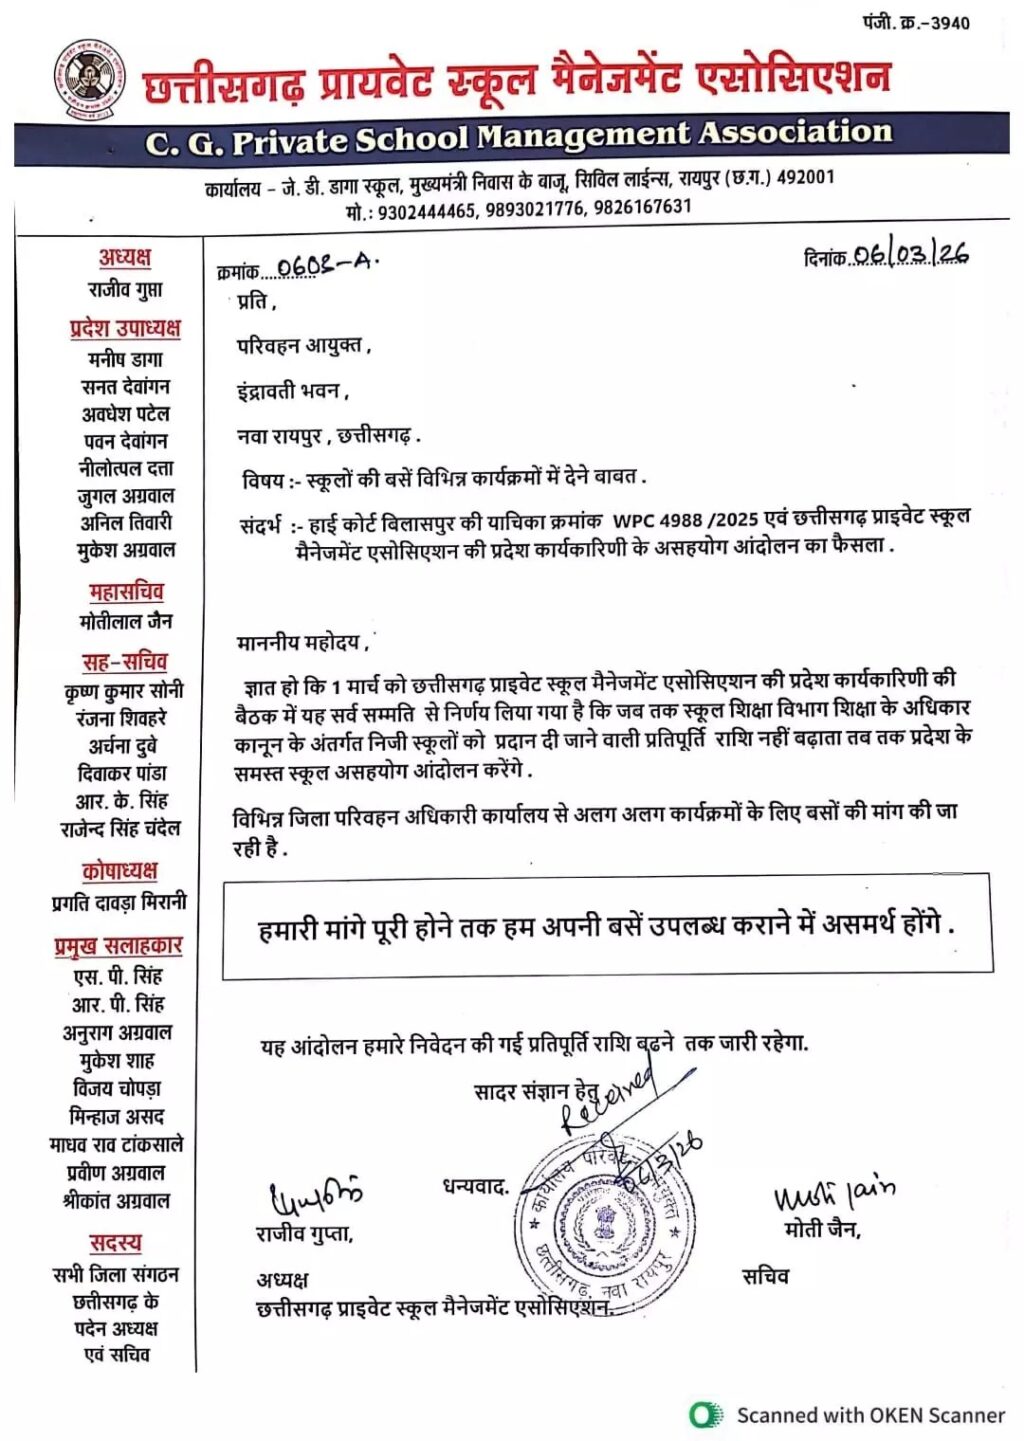 पंजी. क्र.-3940
छत्तीसगढ़ प्रायवेट स्कूल मैनेजमेंट एसोसिएशन
C. G. Private School Management Association
कार्यालय - जे. डी. डागा स्कूल, मुख्यमंत्री निवास के बाजू, सिविल लाईन्स, रायपुर (छ.ग.) 492001
मो.: 9302444465, 9893021776, 9826167631
अध्यक्ष
राजीव गुप्ता
प्रदेश उपाध्यक्ष
मनीष डागा
सनत देवांगन
अवधेश पटेल
पवन देवांगन
नीलोत्पल दत्ता
जुगल अग्रवाल
अनिल तिवारी
मुकेश अग्रवाल
महासचिव
मोतीलाल जैन
सह-सचिव
कृष्ण कुमार सोनी
रंजना शिवहरे
अर्चना दुबे
दिवाकर पांडा
आर. के. सिंह
राजेन्द सिंह चंदेल
कोषाध्यक्ष
प्रगति दावड़ा मिरानी
प्रमुख सलाहकार
एस. पी. सिंह
आर. पी. सिंह
अनुराग अग्रवाल
मुकेश शाह
विजय चोपड़ा
मिन्हाज असद
माधव राव टांकसाले
प्रवीण अग्रवाल
श्रीकांत अग्रवाल
सदस्य
सभी जिला संगठन
छत्तीसगढ़ के
पदेन अध्यक्ष
एवं सचिव
क्रमांक...0608-A.
दिनांक..06/03/26
प्रति ,
परिवहन आयुक्त ,
इंद्रावती भवन ,
नवा रायपुर , छत्तीसगढ़ .
विषय :- स्कूलों की बसें विभिन्न कार्यक्रमों में देने बाबत .
संदर्भ :- हाई कोर्ट बिलासपुर की याचिका क्रमांक WPC 4988 /2025 एवं छत्तीसगढ़ प्राइवेट स्कूल
मैनेजमेंट एसोसिएशन की प्रदेश कार्यकारिणी के असहयोग आंदोलन का फैसला .
माननीय महोदय ,
ज्ञात हो कि 1 मार्च को छत्तीसगढ़ प्राइवेट स्कूल मैनेजमेंट एसोसिएशन की प्रदेश कार्यकारिणी की
बैठक में यह सर्व सम्मति से निर्णय लिया गया है कि जब तक स्कूल शिक्षा विभाग शिक्षा के अधिकार
कानून के अंतर्गत निजी स्कूलों को प्रदान दी जाने वाली प्रतिपूर्ति राशि नहीं बढ़ाता तब तक प्रदेश के
समस्त स्कूल असहयोग आंदोलन करेंगे .
विभिन्न जिला परिवहन अधिकारी कार्यालय से अलग अलग कार्यक्रमों के लिए बसों की मांग की जा
रही है .
हमारी मांगे पूरी होने तक हम अपनी बसें उपलब्ध कराने में असमर्थ होंगे .
यह आंदोलन हमारे निवेदन की गई प्रतिपूर्ति राशि बढ़ने तक जारी रहेगा.
सादर संज्ञान हेतु
Received
06/3/26
धन्यवाद.
कार्यालय परिवहन आयुक्त
छत्तीसगढ़, नवा रायपुर
राजीव गुप्ता,
अध्यक्ष
छत्तीसगढ़ प्राइवेट स्कूल मैनेजमेंट एसोसिएशन.
Moti Jain
मोती जैन,
सचिव
Scanned with OKEN Scanner